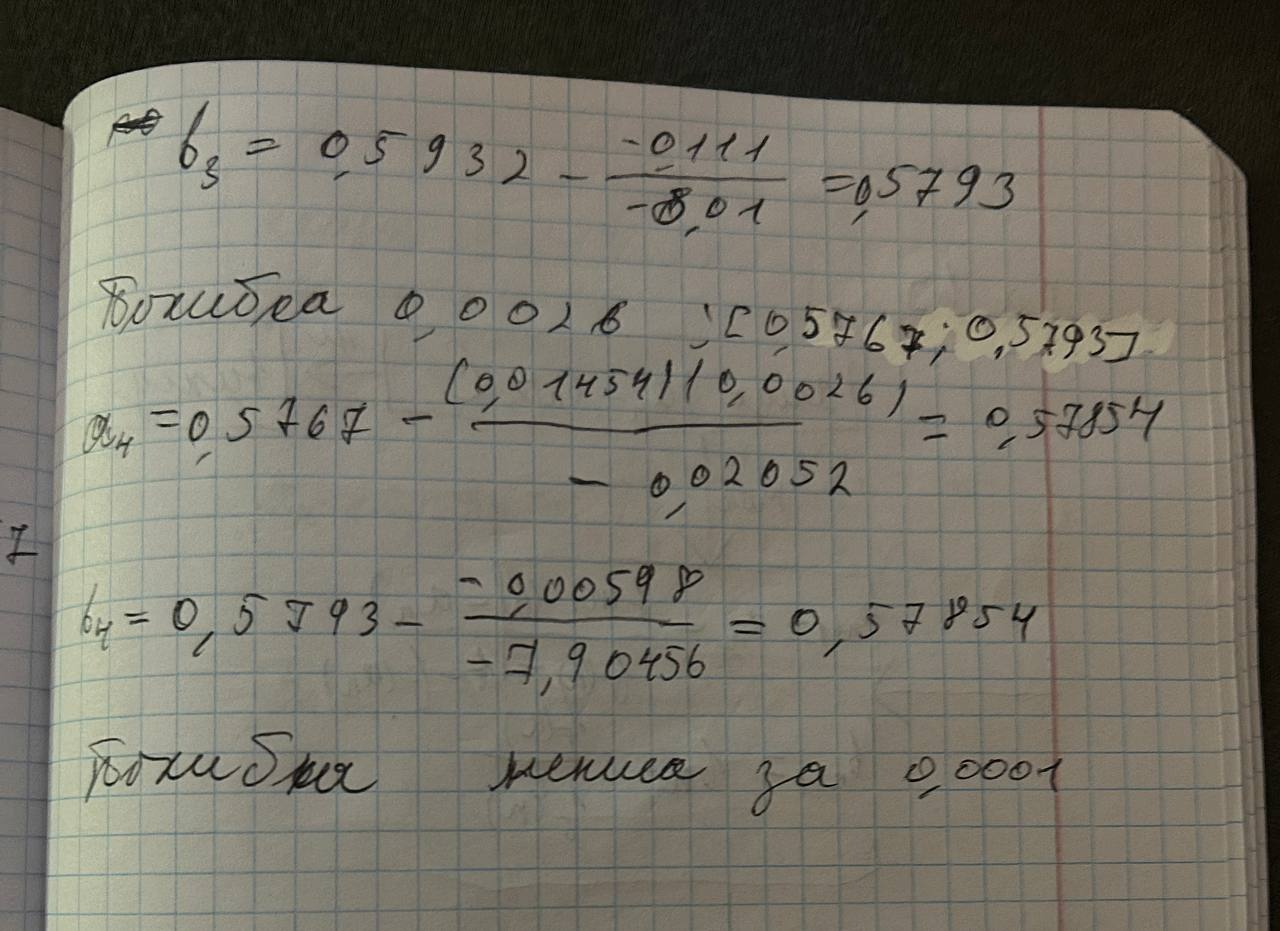 b₃ = 0,5932 - \frac{-0,111}{-8,01} = 0,5793
Похибка 0,0026 ; [0,5767; 0,5793]
a₄ = 0,5767 - \frac{(0,01454)(0,0026)}{-0,02052} = 0,57854
b₄ = 0,5793 - \frac{-0,00598}{-7,90456} = 0,57854
7
Похибка менша за 0,0001